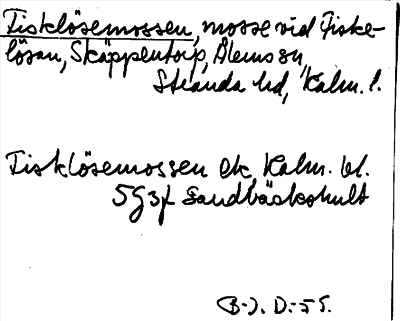 Fisklösemossen, mosse vid Fiske-
lösan, Skäppentorp, Ålems sn,
Stranda hd, Kalm. l.
Fisklösemossen ek Kalm. bl.
5G3f Sandbäckshult
B-J. D:-55.